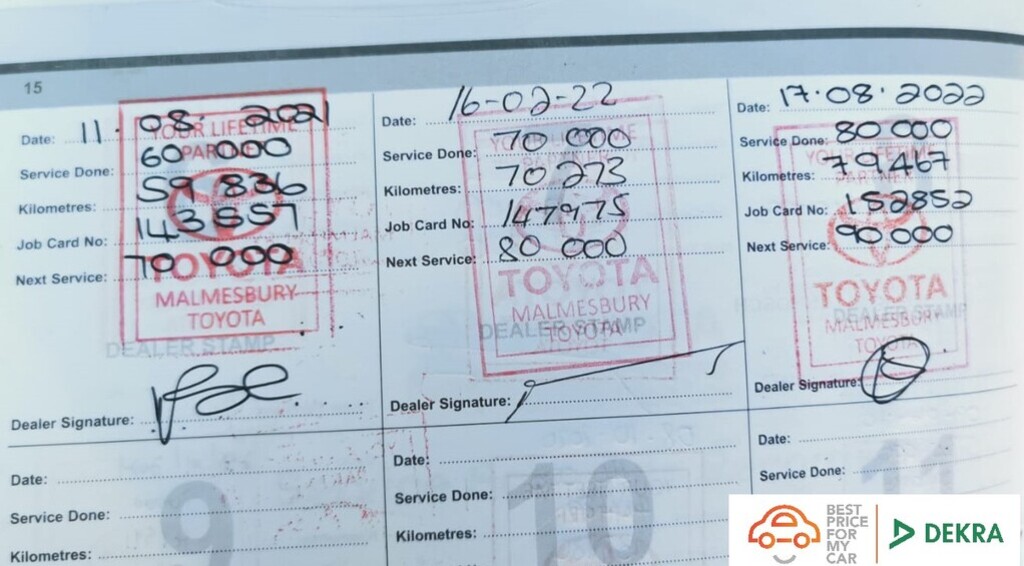 15
Date: 11. 08. 2021
Service Done: 60 000
Kilometres: 59 836
Job Card No: 143557
Next Service: 70 000
YOUR LIFETIME
PARTNER
TOYOTA
MALMESBURY
TOYOTA
DEALER STAMP
Dealer Signature:
Date: 16-02-22
Service Done: 70 000
Kilometres: 70 273
Job Card No: 147975
Next Service: 80 000
TOYOTA
MALMESBURY
TOYOTA
DEALER STAMP
Dealer Signature:
Date: 17.08.2022
Service Done: 80 000
Kilometres: 79467
Job Card No: 152852
Next Service: 90 000
YOUR LIFETIME
PARTNER
TOYOTA
MALMESBURY
TOYOTA
DEALER STAMP
Dealer Signature:
Date:
Service Done:
Kilometres:
9
Date:
Service Done:
Kilometres:
10
Date:
Service Done:
11
BEST
PRICE
FOR
MY
CAR
DEKRA